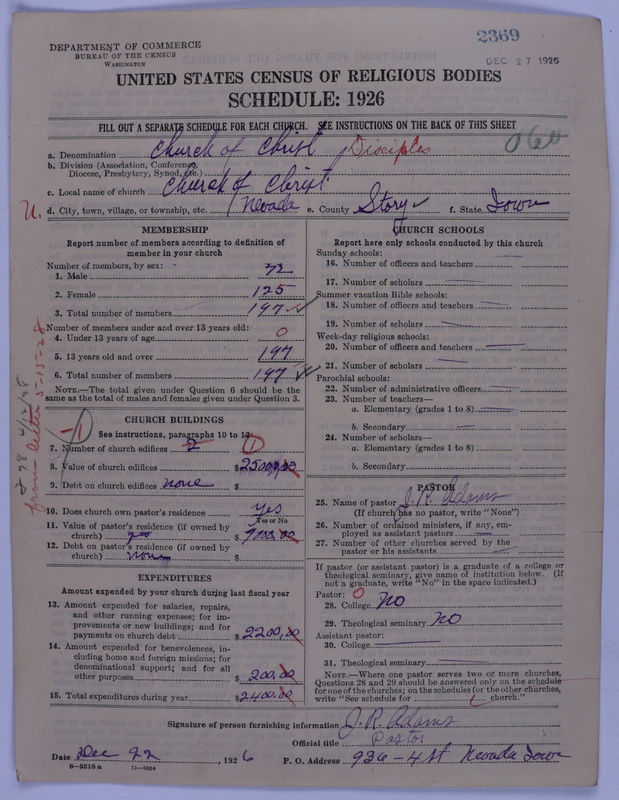 2369
DEPARTMENT OF COMMERCE
BUREAU OF THE CENSUS
WASHINGTON
DEC 27 1926
UNITED STATES CENSUS OF RELIGIOUS BODIES
SCHEDULE: 1926
FILL OUT A SEPARATE SCHEDULE FOR EACH CHURCH. SEE INSTRUCTIONS ON THE BACK OF THIS SHEET
060
a. Denomination Church of Christ Disciples
b. Division (Association, Conference,
Diocese, Presbytery, Synod, etc.)
c. Local name of church Church of Christ
U. d. City, town, village, or township, etc. Nevada e. County Story f. State Iowa
MEMBERSHIP
Report number of members according to definition of
member in your church
Number of members, by sex:
1. Male 72
2. Female 125
3. Total number of members 197
Number of members under and over 13 years old:
4. Under 13 years of age 0
5. 13 years old and over 197
6. Total number of members 197
NOTE.—The total given under Question 6 should be the
same as the total of males and females given under Question 3.
from letter 5-15-28
CHURCH BUILDINGS
See instructions, paragraphs 10 to 12
7. Number of church edifices 2 1
8. Value of church edifices $25000.00
9. Debt on church edifices none $
10. Does church own pastor's residence yes
Yes or No
11. Value of pastor's residence (if owned by
church) yes $7000.00
12. Debt on pastor's residence (if owned by
church) none $
EXPENDITURES
Amount expended by your church during last fiscal year
13. Amount expended for salaries, repairs,
and other running expenses; for im-
provements or new buildings; and for
payments on church debt $2200.00
14. Amount expended for benevolences, in-
cluding home and foreign missions; for
denominational support; and for all
other purposes $200.00
15. Total expenditures during year $2400.00
CHURCH SCHOOLS
Report here only schools conducted by this church
Sunday schools:
16. Number of officers and teachers
17. Number of scholars
Summer vacation Bible schools:
18. Number of officers and teachers
19. Number of scholars
Week-day religious schools:
20. Number of officers and teachers
21. Number of scholars
Parochial schools:
22. Number of administrative officers
23. Number of teachers—
a. Elementary (grades 1 to 8)
b. Secondary
24. Number of scholars—
a. Elementary (grades 1 to 8)
b. Secondary
PASTOR
25. Name of pastor J. R. Adams
(If church has no pastor, write "None")
26. Number of ordained ministers, if any, em-
ployed as assistant pastors
27. Number of other churches served by the
pastor or his assistants
If pastor (or assistant pastor) is a graduate of a college or
theological seminary, give name of institution below. (If
not a graduate, write "No" in the space indicated.)
Pastor: 0
28. College No
29. Theological seminary No
Assistant pastor:
30. College
31. Theological seminary
NOTE.—Where one pastor serves two or more churches,
Questions 28 and 29 should be answered only on the schedule
for one of the churches; on the schedules for the other churches,
write "See schedule for church."
Signature of person furnishing information J. R. Adams
Official title Pastor
Date Dec 22, 1926 P. O. Address 936 - 4 St Nevada Iowa
8—5518 a 11—9064